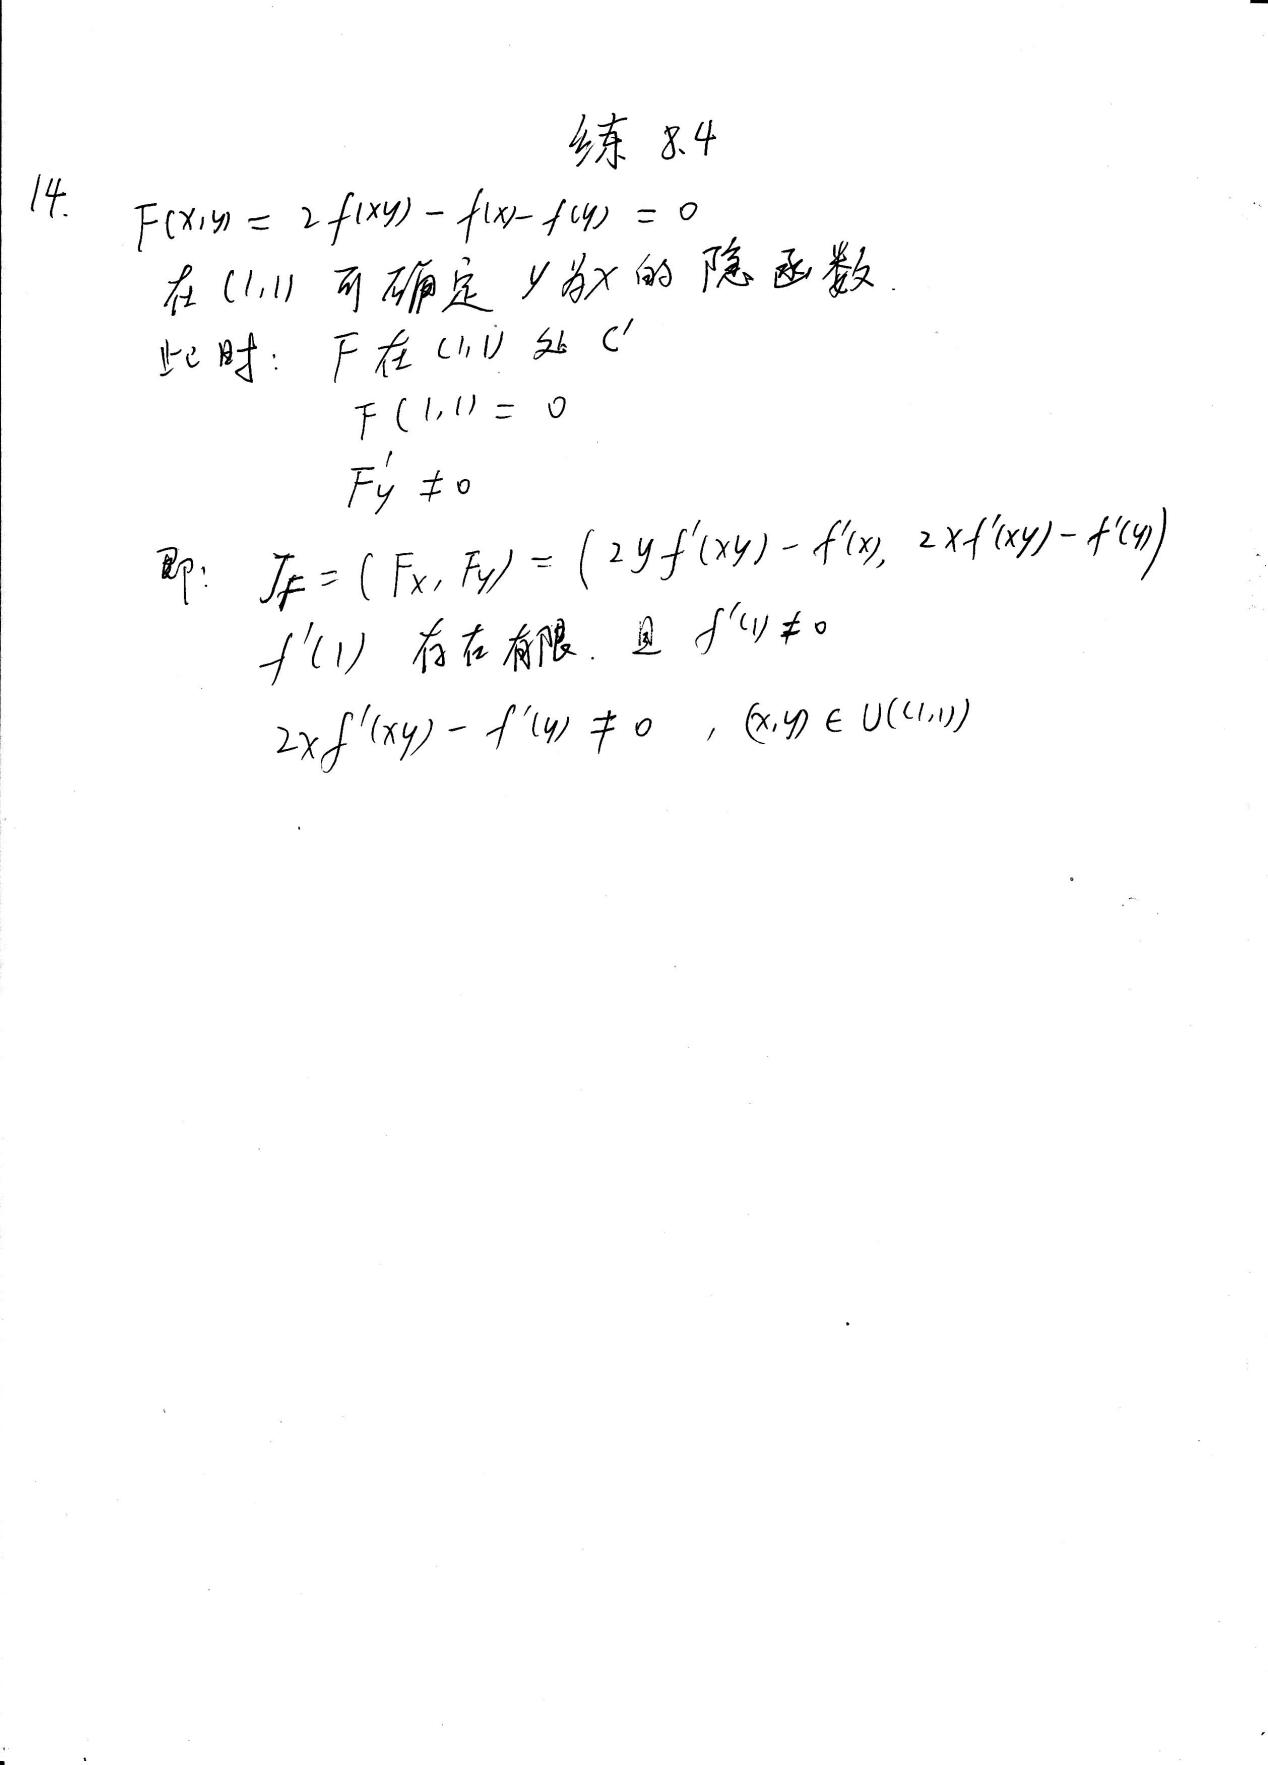 练 8.4
14.
F(x,y) = 2f(xy) - f(x) - f(y) = 0
在 (1,1) 可确定 y为x的 隐函数.
此时: F 在 (1,1) 处 C'
F(1,1) = 0
F'y ≠ 0
即: J_F = (Fx, Fy) = (2yf'(xy) - f'(x), 2xf'(xy) - f'(y))
f'(1) 存在有限. 且 f'(1) ≠ 0
2xf'(xy) - f'(y) ≠ 0 , (x,y) ∈ U((1,1))